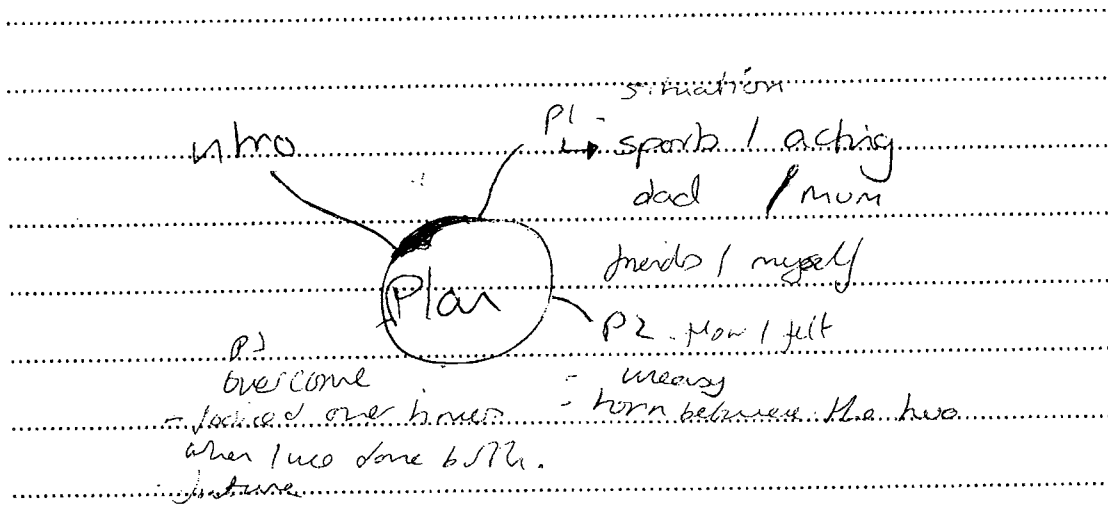 intro
P1 - situation
→ sports / acting
dad / mum
friends / myself
Plan
P2. How I felt
- uneasy
- torn between the two
P3
overcome
- looked over times
when I've done both.
- future